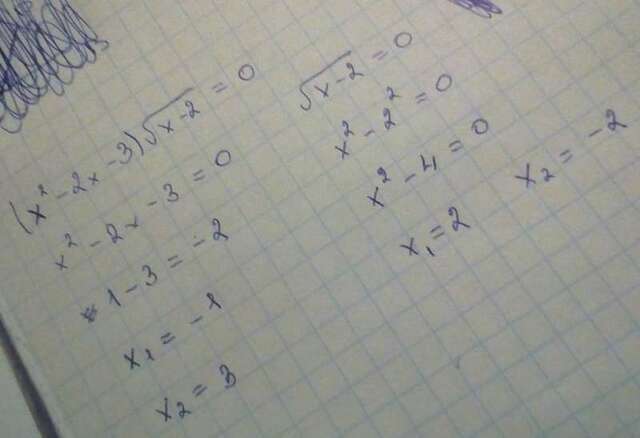 (x² - 2x - 3)√x-2 = 0
x² - 2x - 3 = 0
1 - 3 = -2
x₁ = -1
x₂ = 3
√x-2 = 0
x² - 2² = 0
x² - 4 = 0
x₁ = 2 x₂ = -2